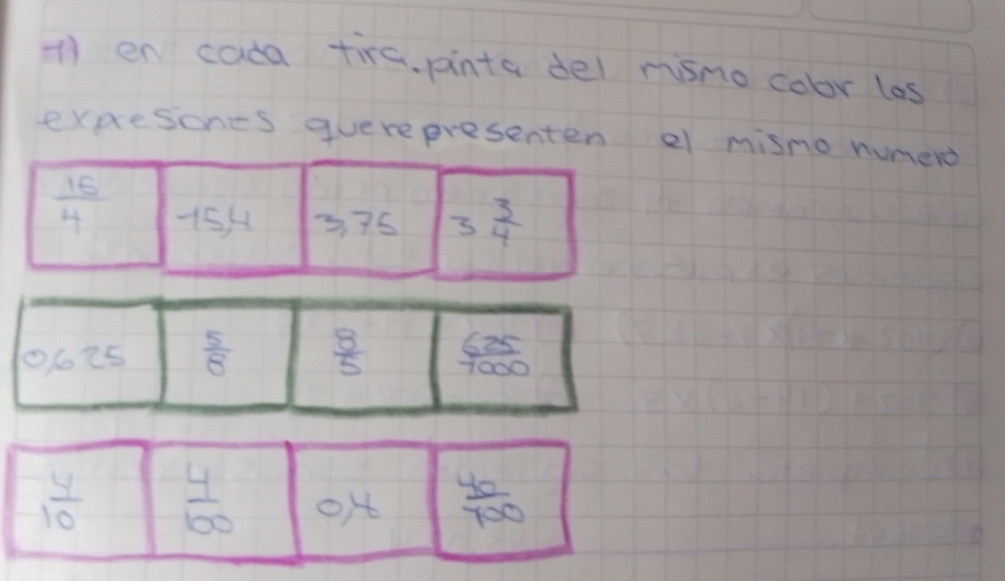 1) en cada tira. pinta del mismo color las
expresiones que representen el mismo numero
15/4 15,4 3,75 3 3/4
0,625 5/8 8/5 625/1000
4/10 4/100 0,4 40/100